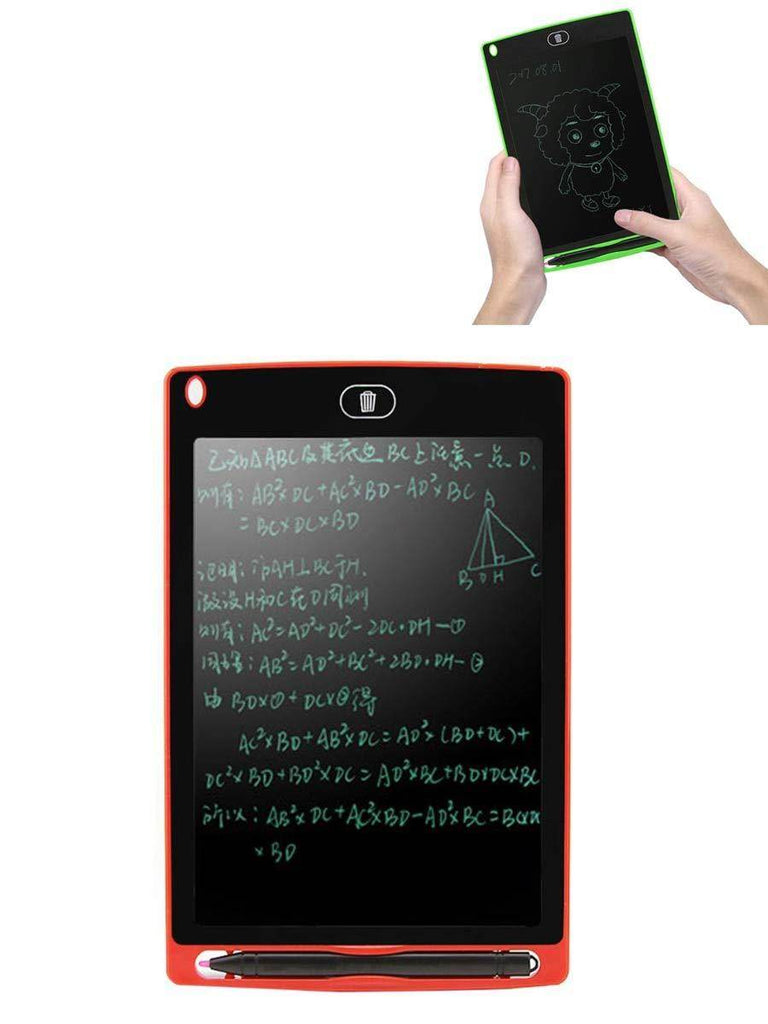 2017.08.01
已知△ABC及其底边BC上任意一点D.
则有: AB²×DC+AC²×BD-AD²×BC
=BC×DC×BD
A
B D H C
证明: 作AH⊥BC于H.
假设H和C在D同侧
则有: AC²=AD²+DC²-2DC·DH—①
同理: AB²=AD²+BC²+2BD·DH-②
由BD×①+DC×②得
AC²×BD+AB²×DC=AD²×(BD+DC)+
DC²×BD+BD²×DC=AD²×BC+BD×DC×BC
所以: AB²×DC+AC²×BD-AD²×BC=BC×DC
×BD